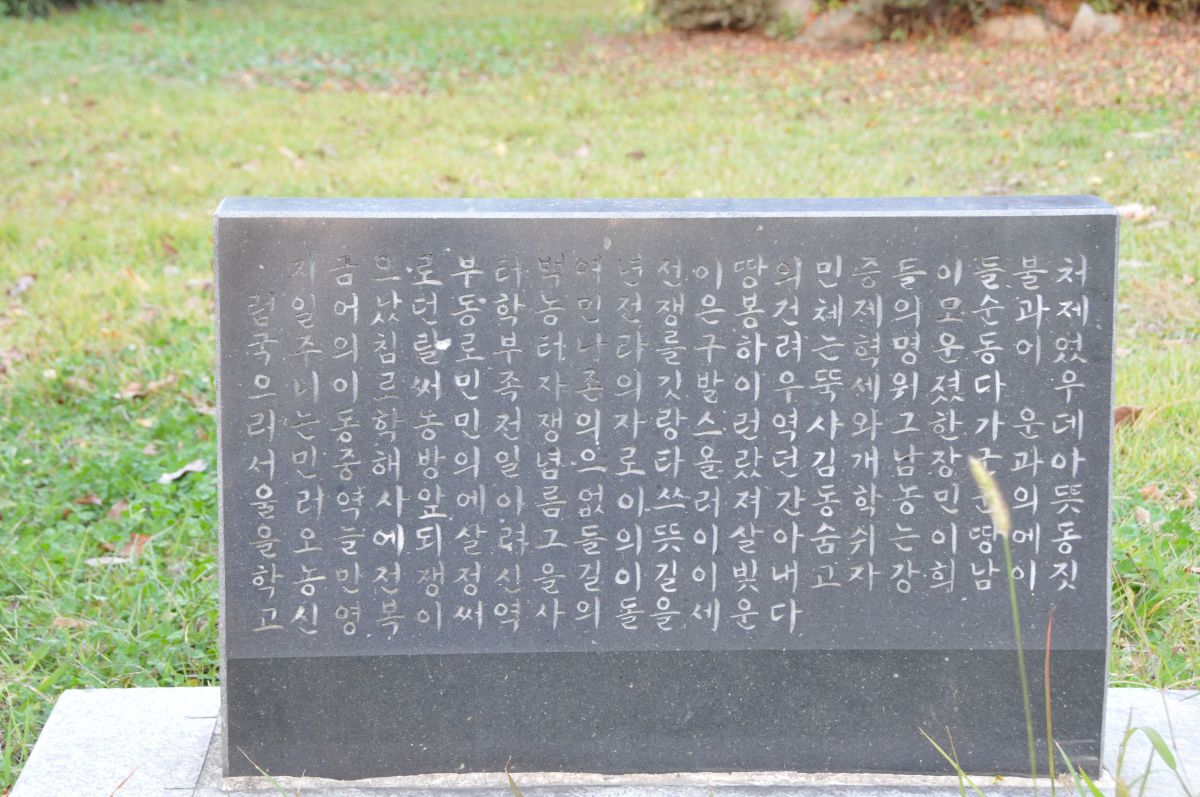 지금으로부터백여년전이땅의민중들이들불처
럼일어났던동학농민전쟁은봉건체제의모순과제
국주의침탈로부터나라를구하려는혁명운동이었
으니이로써민족자존의깃발이우뚝세워졌다 우
리는동학농민전쟁의자랑스런역사와그한가운데
서민중해방의일념으로타올랐던김개남장군과아
울러역사앞에아름없이쓰러져간동학농민의뜻
을오늘에되살려그들의뜻이살아숨쉬는이땅에동
학농민전쟁정신을길이길이빛내고자강희남이짓
고신영복이써역사의돌을세운다